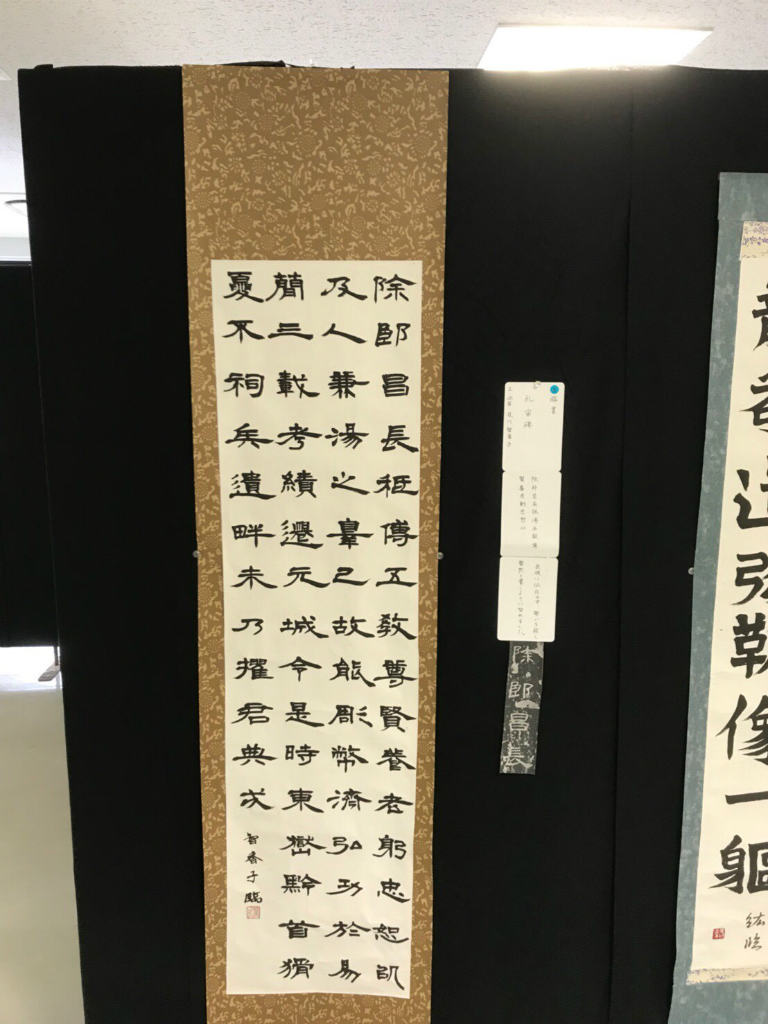 除郎昌長祗傅五教尊賢養老躬忠恕以
及人兼湯之辠己故能彫幣濟弘功於易
簡三載考績遷元城令是時東嶽黔首猾
夏不祠矣遺畔未乃擢君典戎
智香子臨
臨書
孔宙碑
除郎昌長
造弥勒像一軀
臨